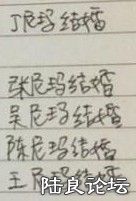 丁尼玛结婚
张尼玛结婚
吴尼玛结婚
陈尼玛结婚
王尼玛结婚
陆良论坛